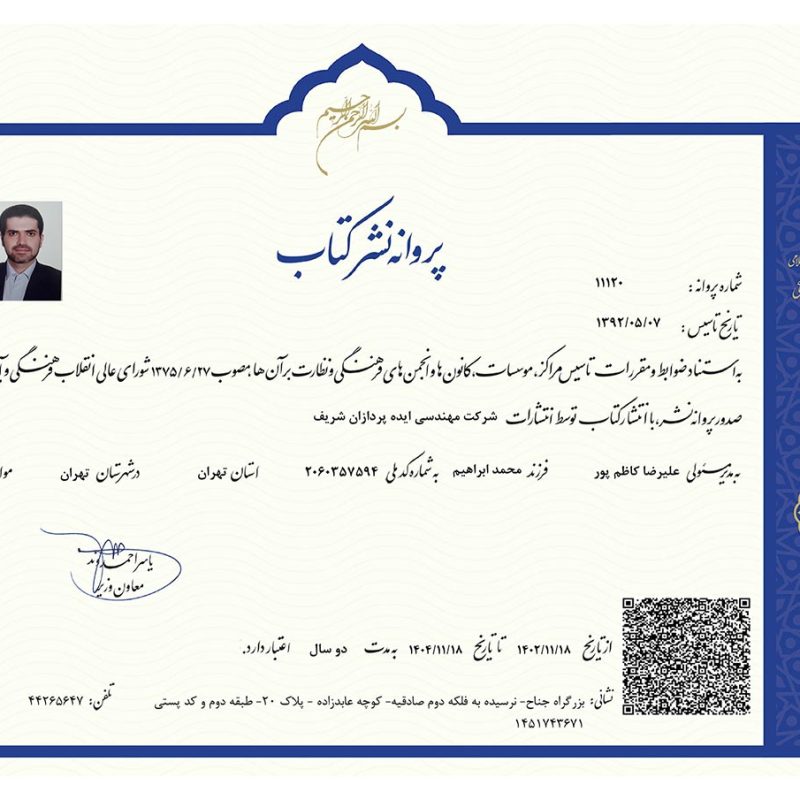 بسم الله الرحمن الرحیم
پروانه نشر کتاب
شماره پروانه: ۱۱۱۲۰
تاریخ تاسیس: ۱۳۹۲/۰۵/۰۷
به استناد ضوابط و مقررات تاسیس مراکز، موسسات، کانون ها و انجمن های فرهنگی و نظارت بر آن ها، مصوب ۱۳۷۵/۶/۲۷ شورای عالی انقلاب فرهنگی و
صدور پروانه نشر، با انتشار کتاب توسط انتشارات شرکت مهندسی ایده پردازان شریف
به مدیر مسئولی علیرضا کاظم پور فرزند محمد ابراهیم به شماره کد ملی ۲۰۶۰۳۵۷۵۹۴ استان تهران در شهرستان تهران
یاسر احمدوند
معاون وزیر
از تاریخ ۱۴۰۲/۱۱/۱۸ تا تاریخ ۱۴۰۴/۱۱/۱۸ به مدت دو سال اعتبار دارد.
نشانی: بزرگراه جناح- نرسیده به فلکه دوم صادقیه- کوچه عابدزاده - پلاک ۲۰- طبقه دوم و کد پستی
۱۴۵۱۷۴۳۶۷۱
تلفن: ۴۴۲۶۵۶۴۷